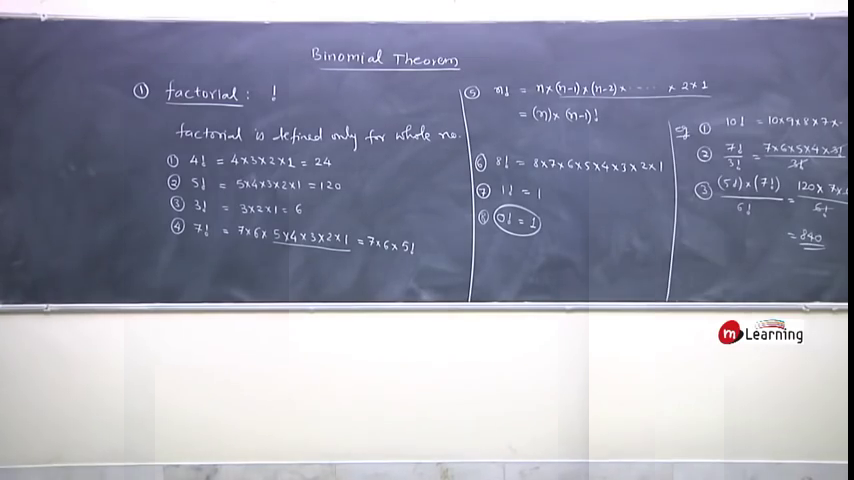 Binomial Theorem
① factorial : !
factorial is defined only for whole no.
① 4! = 4×3×2×1 = 24
② 5! = 5×4×3×2×1 = 120
③ 3! = 3×2×1 = 6
④ 7! = 7×6×5×4×3×2×1 = 7×6×5!
⑤ n! = n×(n-1)×(n-2)×.....×2×1
= (n)×(n-1)!
⑥ 8! = 8×7×6×5×4×3×2×1
⑦ 1! = 1
⑧ 0! = 1
eg ① 10! = 10×9×8×7×
② 7!/3! = 7×6×5×4×3!/3!
③ (5!)×(7!)/6! = 120×7×6!/6!
= 840
m Learning